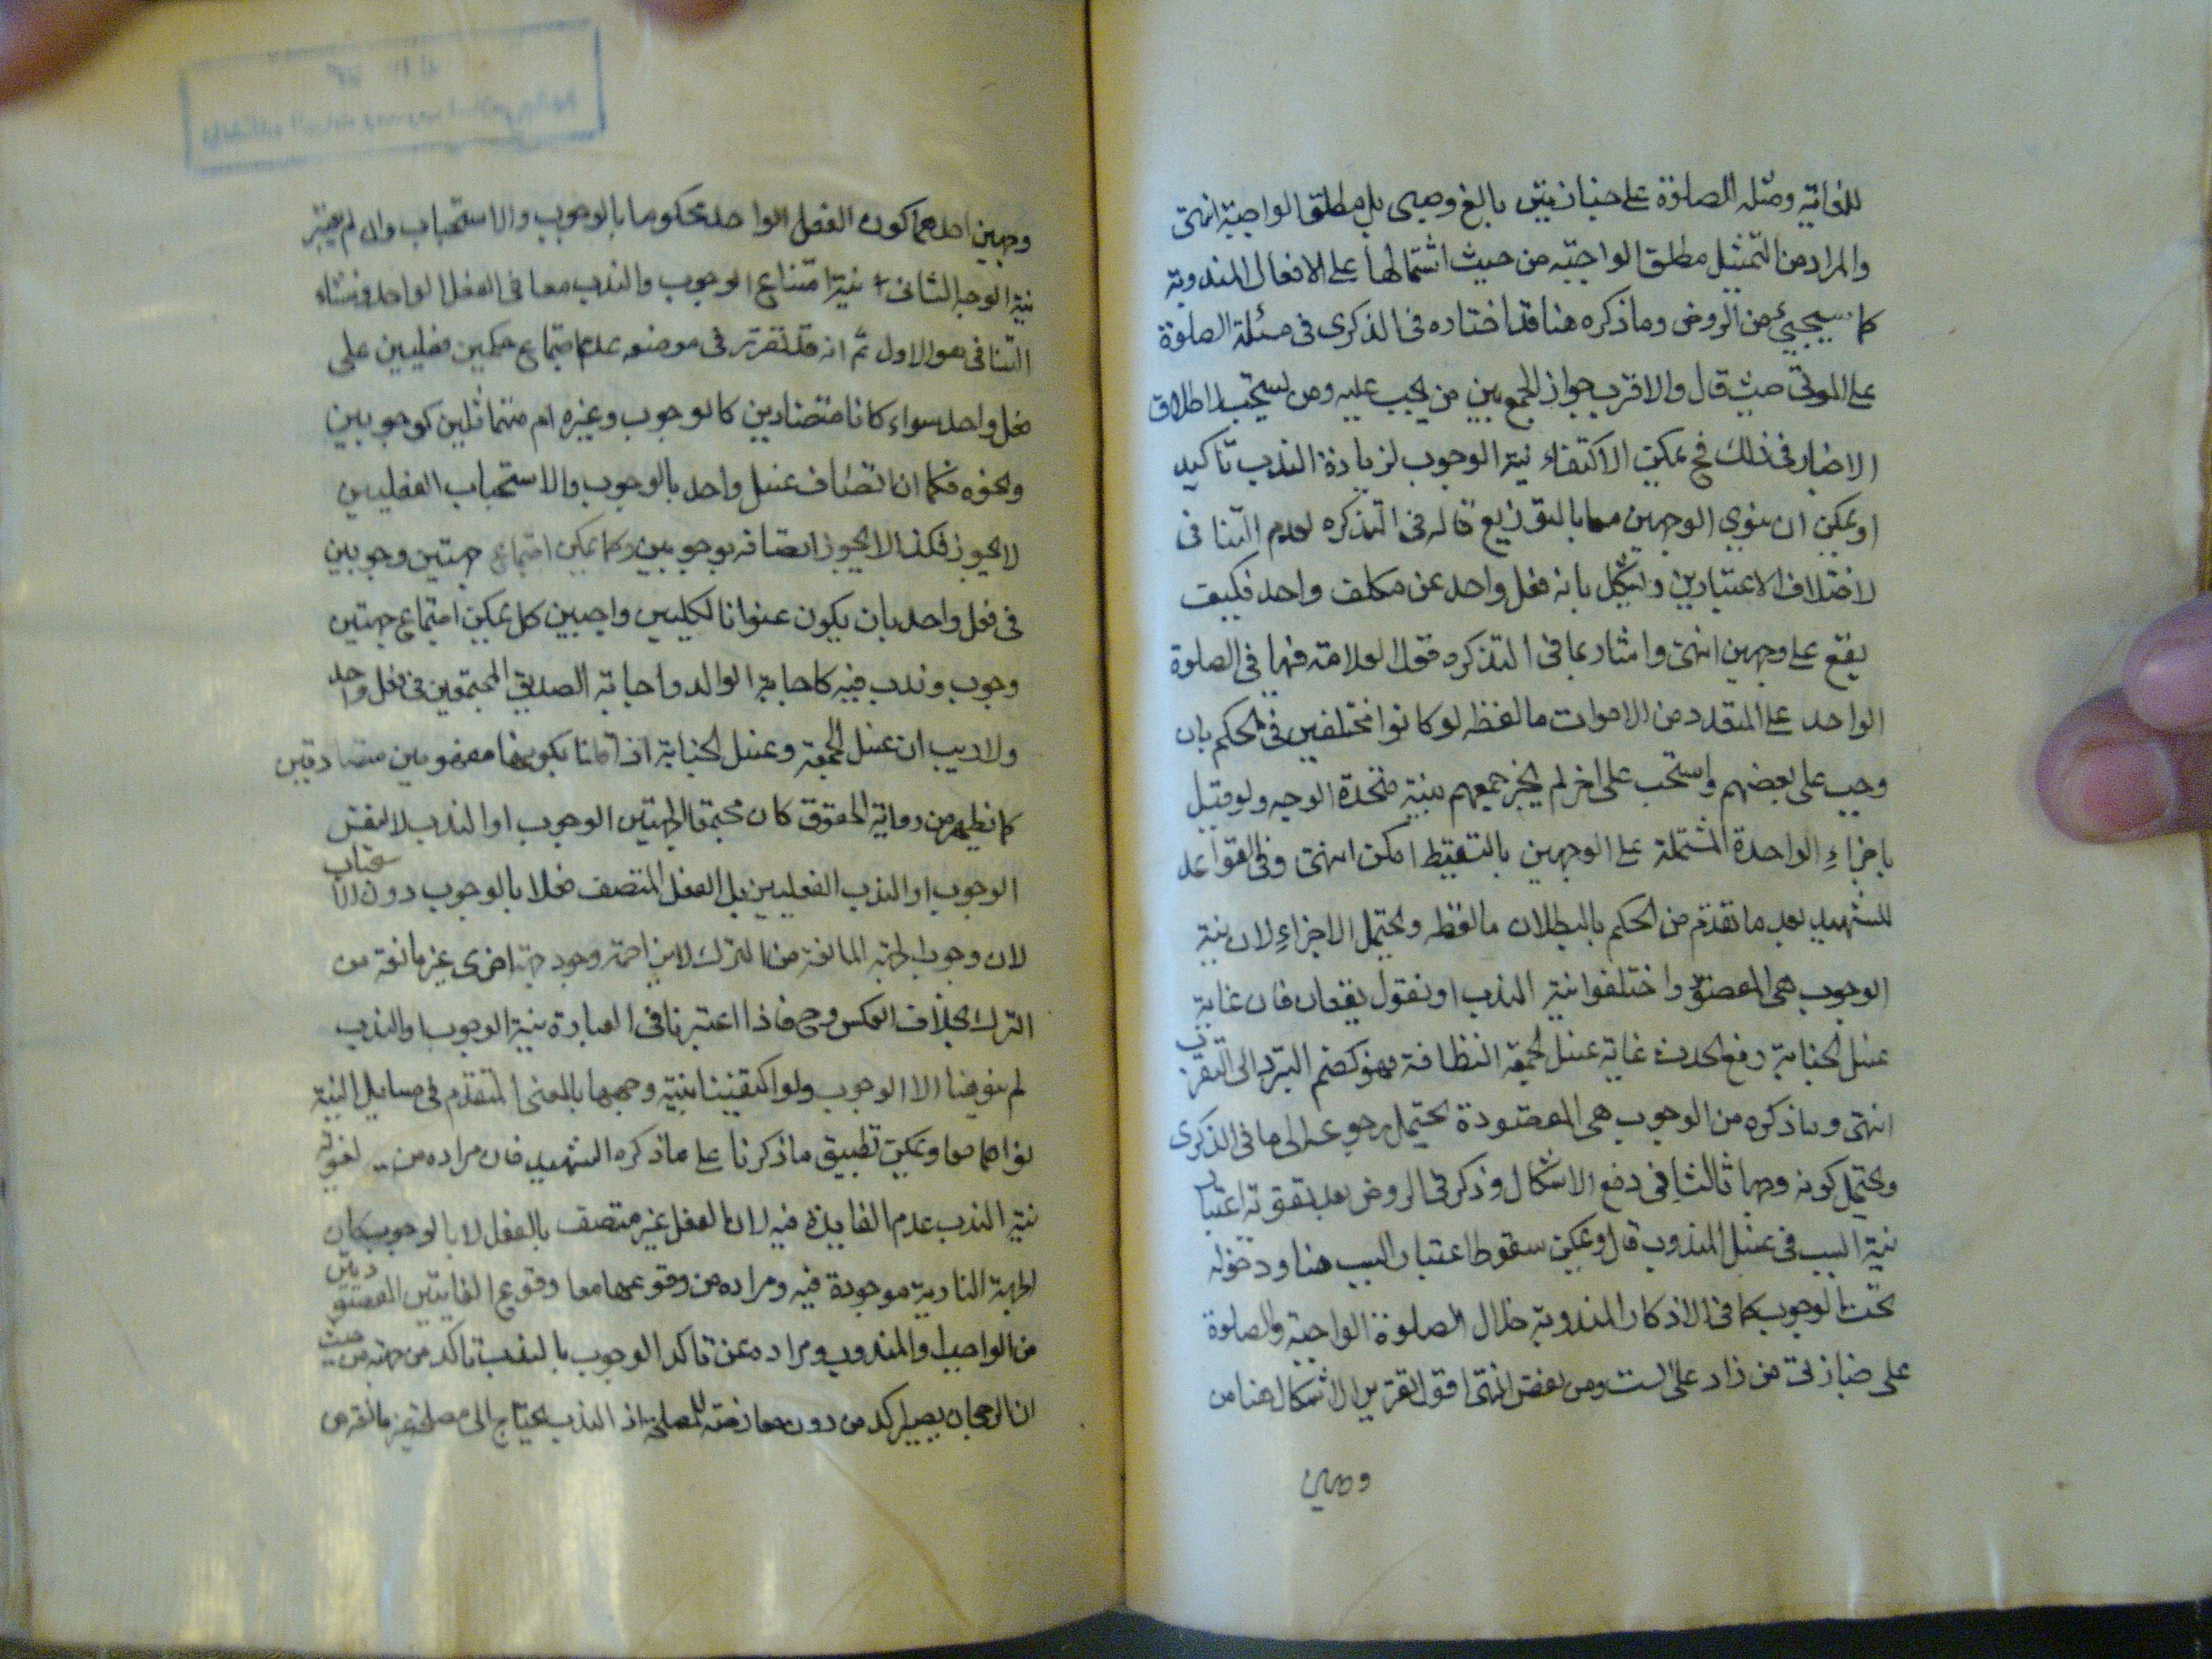 للغاية ومثله الصلوة على جنازتين بالغ وصبى بل مطلق الواجبة انتهى
والمراد من التمثيل مطلق الواجبة من حيث اشتمالها على الافعال المندوبة
كما سيجيئ من الروض وما ذكره هنا قد اختاره فى الذكرى فى مسئلة الصلوة
على الموتى حيث قال والاقرب جواز الجمع بين من يجب عليه ومن يستحب لاطلاق
الاخبار فى ذلك فح يمكن الاكتفاء نية الوجوب لزيادة الندب تاكيد
او يمكن ان ينوى الوجهين معا بالتوزيع قاله فى التذكره لعدم التنافى
لاختلاف الاعتبارين ويشكل بانه فعل واحد عن مكلف واحد فكيف
يقع على وجهين انتهى واشار بما فى التذكره قول العلامة فيها فى الصلوة
الواحد على المتعدد من الاموات ما لفظه لو كانوا مختلفين فى الحكم بان
وجب على بعضهم واستحب على اخر لم يجز جمعهم بنية متحدة الوجه ولو قيل
باجزاء الواحدة المشتملة على الوجهين بالتقسيط امكن انتهى وفى القواعد
للشهيد بعد ما تقدم من الحكم بالبطلان ما لفظه ويحتمل الاجزاء لان نية
الوجوب هى المقصودة واختلفوا نية الندب او نقول يقعان فان غاية
غسل الجنابة رفع الحدث غاية غسل الجمعة النظافة فهو كضم التبرد الى التقرب
انتهى وما ذكره من الوجوب هى المقصودة يحتمل رجوعه الى ما فى الذكرى
ويحتمل كونه وجها ثالثا فى دفع الاشكال وذكر فى الروض بعد تقوية اعتبار
نية السبب فى غسل المندوب قال ويمكن سقوط اعتبار السبب هنا ودخوله
تحت الوجوب كما فى الاذكار المندوبة خلال الصلوة الواجبة والصلوة
على جنازتى من زاد على الست ومن نقص انتهى اقول تقرير الاشكال هنا من
وجهين
وجهين احدهما كون الفعل الواحد محكوما بالوجوب والاستحباب وان لم يعتبر
نية الوجه الثانى نية امتناع الوجوب والندب معا فى الفعل الواحد ومنشاء
التنافى هو الاول ثم انه قد تقرر فى موضعه عدم اجتماع حكمين فعليين على
فعل واحد سواء كانا متضادين كالوجوب وغيره ام متماثلين كوجوبين
ونحوه فكما ان اتصاف غسل واحد بالوجوب والاستحباب الفعليين
لا يجوز فكذا لا يجوز اتصافه بوجوبين وكما يمكن اجتماع جهتين وجوبين
فى فعل واحد بان يكون عنوانا لكليين واجبين كل يمكن اجتماع جهتين
وجوب وندب فيه كاجابة الوالد واجابة الصديق المجتمعين فى فعل واحد
ولا ريب ان غسل الجمعة وغسل الجنابة اذا قلنا بكونهما مفهومين متصادقين
كما يظهر من رواية الحقوق كان مجتمعا لجهتين الوجوب او الندب لا لنفس
الوجوب او الندب الفعليين بل الفعل المتصف فعلا بالوجوب دون الاستحباب
لان وجوب الجهة المانعة من الترك لا يزاحمه وجود جهة اخرى غير مانعة من
الترك بخلاف العكس وح فاذا اعتبرنا فى العبادة نية الوجوب او الندب
لم ينو هنا الا الوجوب ولو اكتفينا بنية وجههما بالمعنى المتقدم فى مسايل النية
نواهما معا ويمكن تطبيق ما ذكرنا على ما ذكره الشهيد فان مراده من لغوية
نية الندب عدم الفايدة فيه لان الفعل غير متصف بالفعل الا بالوجوب وكان
الجهة النادبة موجودة فيه ومراده من وقوعهما معا وقوع الغايتين المقصودتين
من الواجب والمندوب ومراده من تاكد الوجوب بالندب تاكد من جهته من حيث
ان الرجحان يصير اكد من دون معارضته للمصلحة اذ الندب يحتاج الى مصلحة غير مانعة من